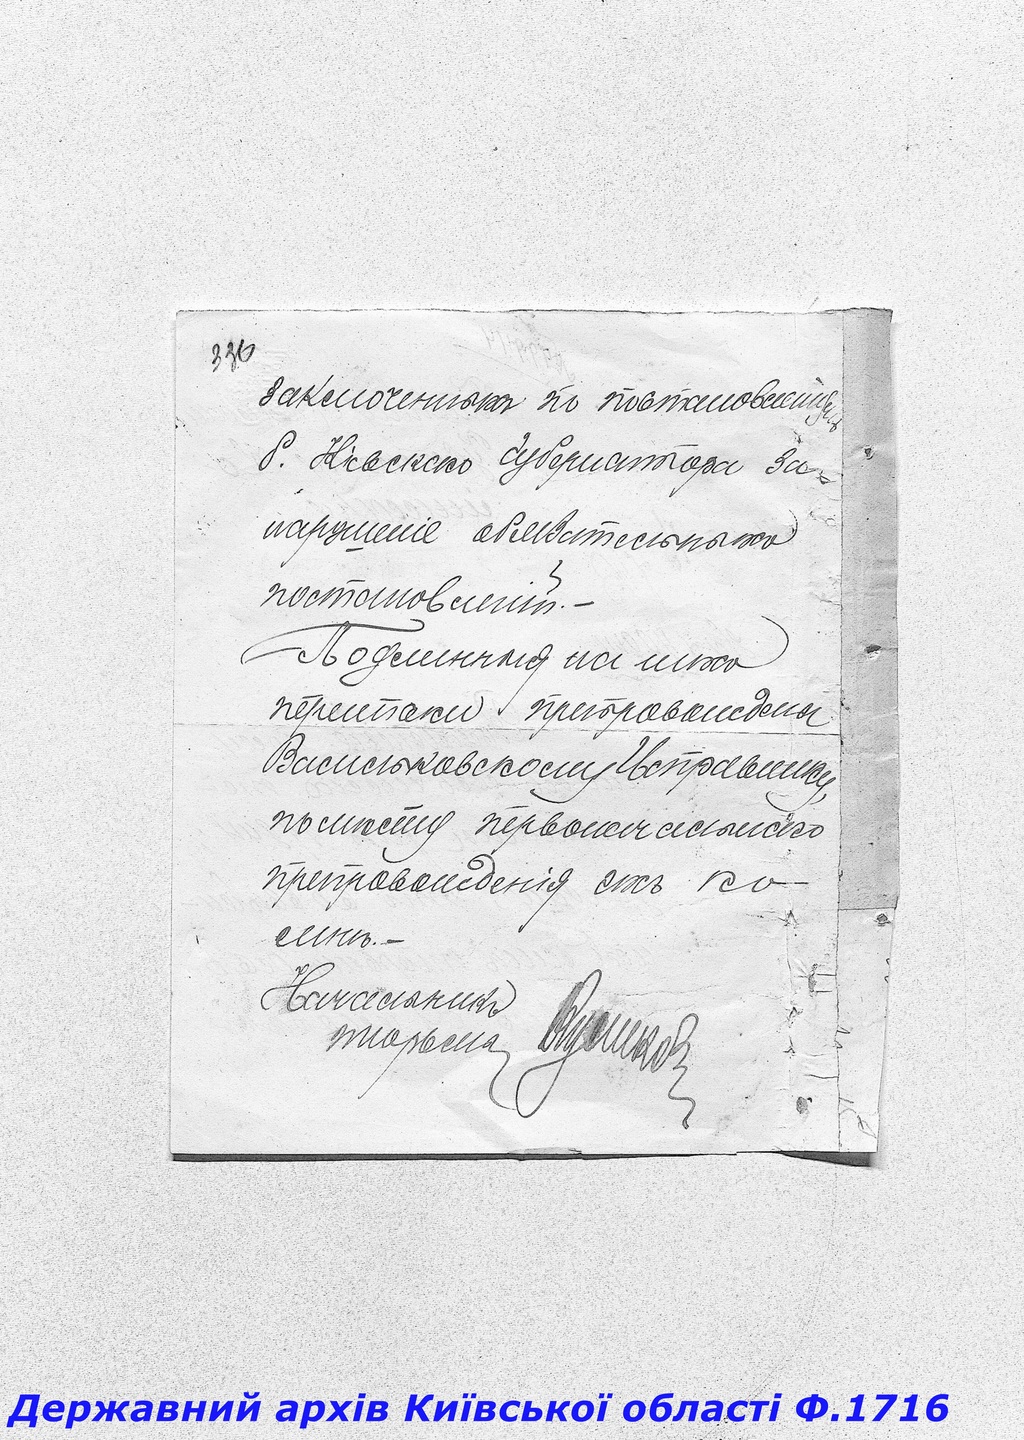 336
заключеннымъ по постановленіямъ
б. Кіевскаго Губернатора за
нарушеніе обязательныхъ
постановленій.—
Подлинныя на нихъ
переписки препровождены
Васильковскому Исправнику,
по мѣсту первоначальнаго
препровожденія ихъ ко
мнѣ.—
Начальникъ
тюрьмы
Державний архів Київської області Ф.1716